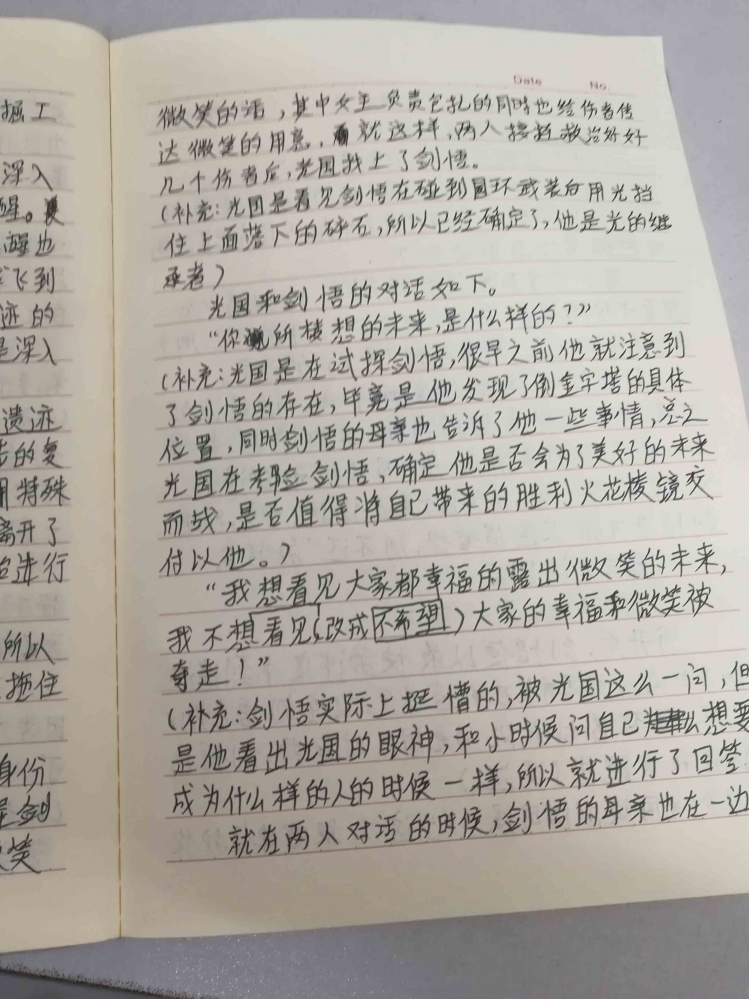 掘工
深入
醒。
醒也
飞到
迹的
是深入
遗迹
的复
用特殊
离开了
进行
所以
拖住
身份
是剑
微笑
Date No.
微笑的话，其中女主负责包扎的同时也给伤者传
达微笑的用意，就这样，两人接连救治好好
几个伤者后，光国找上了剑悟。
(补充：光国是看见剑悟在碰到圆环武装后用光挡
住上面落下的碎石，所以已经确定了，他是光的继
承者)
光国和剑悟的对话如下。
“你所梭想的未来，是什么样的？”
(补充：光国是在试探剑悟，很早之前他就注意到
了剑悟的存在，毕竟是他发现了倒金字塔的具体
位置，同时剑悟的母亲也告诉了他一些事情，总之
光国在考验剑悟，确定他是否会为了美好的未来
而战，是否值得将自己带来的胜利火花棱镜交
付以他。)
“我想看见大家都幸福的露出微笑的未来，
我不想看见(改成不希望)大家的幸福和微笑被
夺走！”
(补充：剑悟实际上挺懵的，被光国这么一问，但
是他看出光国的眼神，和小时候问自己想要
成为什么样的人的时候一样，所以就进行了回答
就在两人对话的时候，剑悟的母亲也在一边